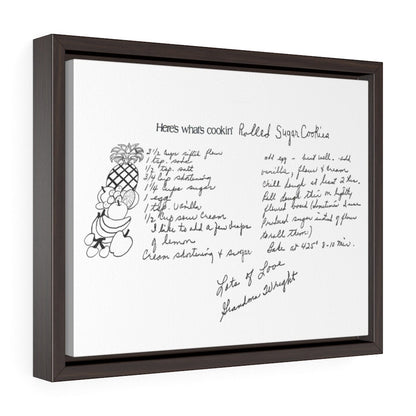 Here's what's cookin' Rolled Sugar Cookies
3 1/2 cups sifted flour
1 tsp. soda
1/2 tsp. salt
3/4 cup shortening
1 1/4 cups sugar
1 egg
1 tsp. vanilla
1/2 cup sour cream
I like to add a few drops
of lemon
Cream shortening & sugar
add egg - beat well. add
vanilla, flour & cream
Chill dough at least 2 hrs.
Roll dough thin on lightly
floured board
sugar instead of flour
to roll them)
Bake at 425° 8-10 min.
Lots of Love
Grandma Wright